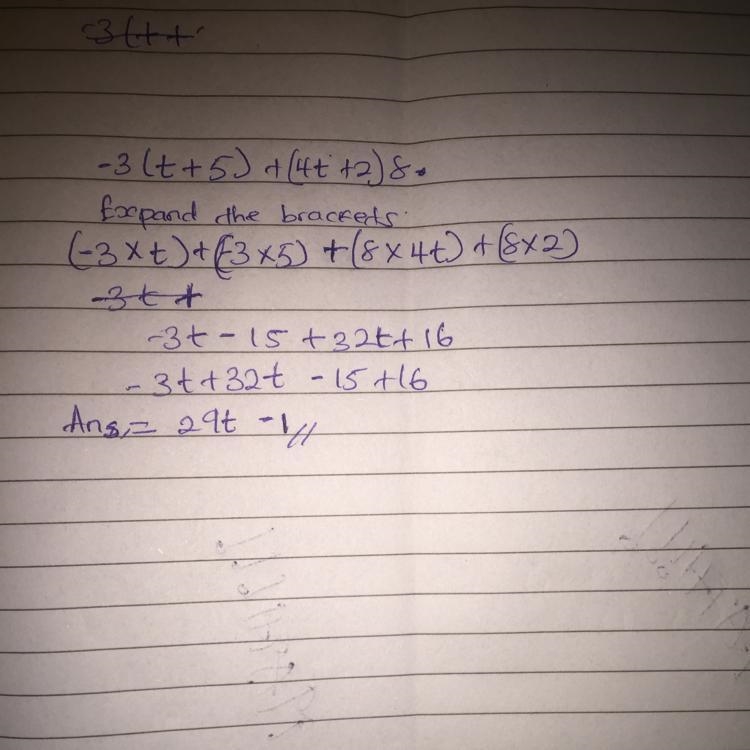 -3(t+
-3(t+5)+(4t+2)8.
Expand the brackets.
(-3×t)+(-3×5)+(8×4t)+(8×2)
-3t+
-3t-15+32t+16
-3t+32t-15+16
Ans,= 29t-1//